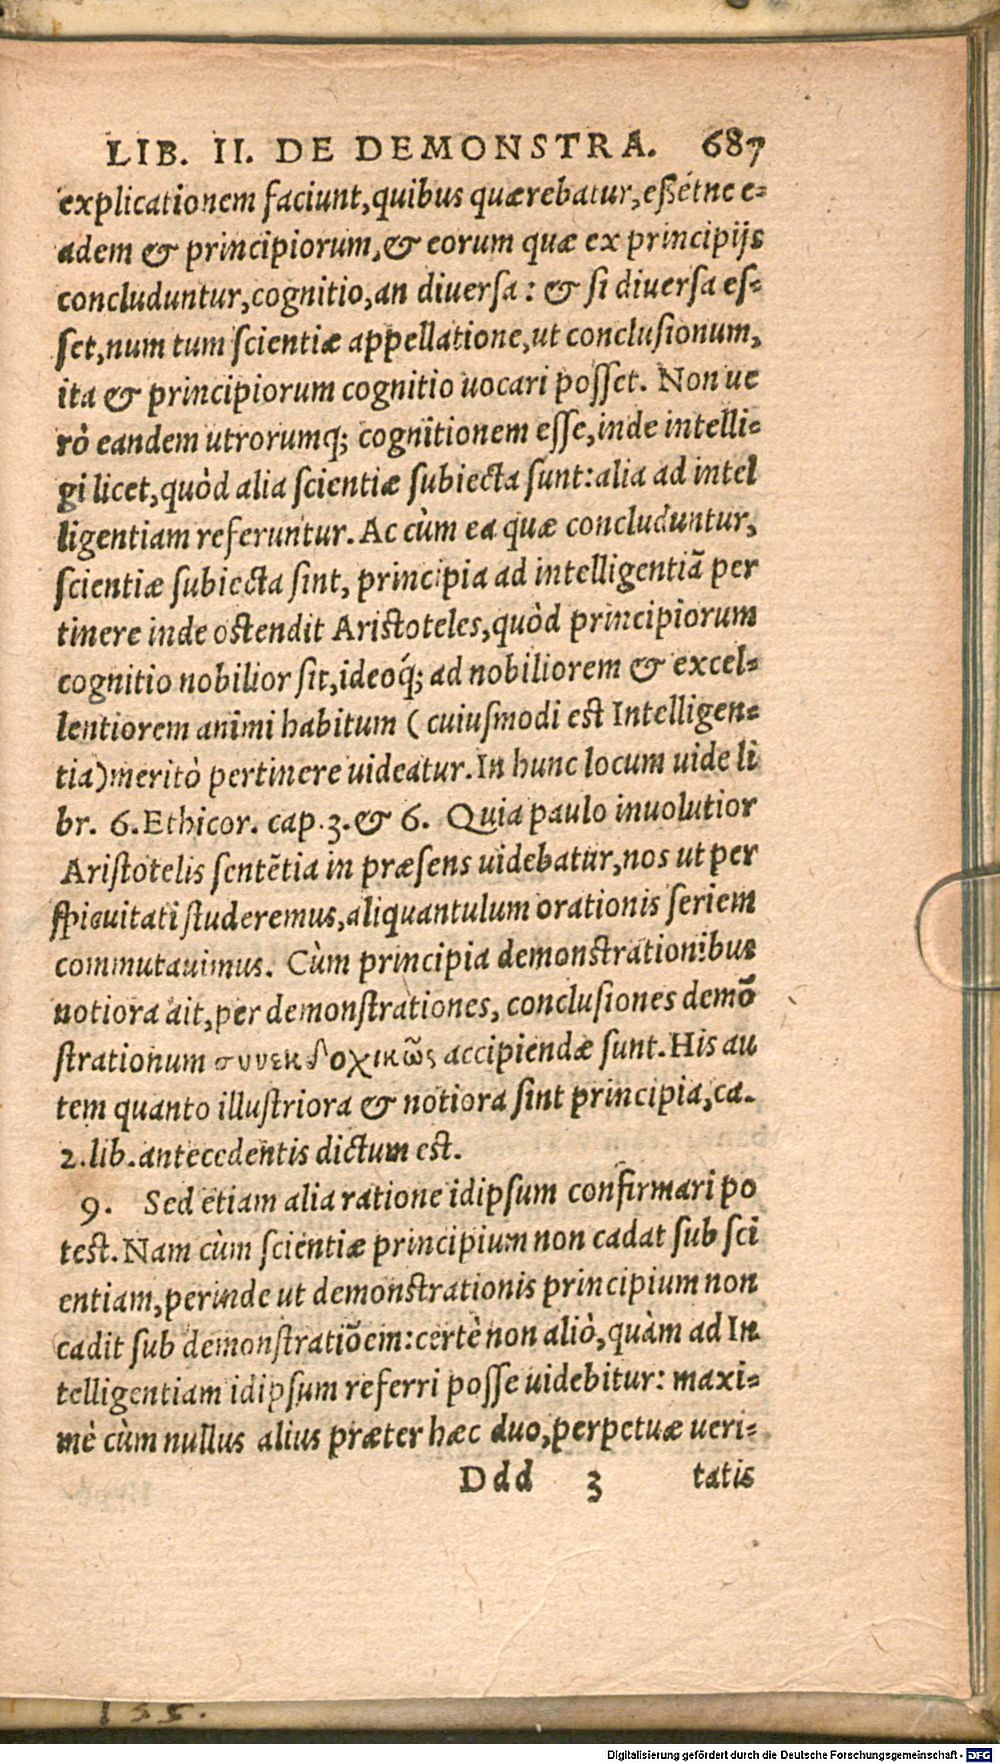 LIB. II. DE DEMONSTRA. 687
explicationem faciunt, quibus quærebatur, eßétne e-
adem & principiorum, & eorum quæ ex principijs
concluduntur, cognitio, an diuersa: & si diuersa es-
set, num tum scientiæ appellatione, ut conclusionum,
ita & principiorum cognitio uocari posset. Non ue
rò eandem utrorumq; cognitionem esse, inde intelli-
gi licet, quòd alia scientiæ subiecta sunt: alia ad intel
ligentiam referuntur. Ac cùm ea quæ concluduntur,
scientiæ subiecta sint, principia ad intelligentiã per
tinere inde ostendit Aristoteles, quòd principiorum
cognitio nobilior sit, ideoq́; ad nobiliorem & excel-
lentiorem animi habitum (cuiusmodi est Intelligen-
tia) meritò pertinere uideatur. In hunc locum uide li
br. 6. Ethicor. cap. 3. & 6. Quia paulo inuolutior
Aristotelis sentẽtia in præsens uidebatur, nos ut per
spicuitati studeremus, aliquantulum orationis seriem
commutauimus. Cùm principia demonstrationibus
notiora ait, per demonstrationes, conclusiones demõ
strationum συνεκδοχικῶς accipiendæ sunt. His au
tem quanto illustriora & notiora sint principia, ca.
2. lib. antecedentis dictum est.
9. Sed etiam alia ratione idipsum confirmari po
test. Nam cùm scientiæ principium non cadat sub sci
entiam, perinde ut demonstrationis principium non
cadit sub demonstratiõem: certè non aliò, quàm ad In
telligentiam idipsum referri posse uidebitur: maxi-
mè cùm nullus alius præter hæc duo, perpetuæ ueri-
Ddd 3 tatis
155.
Digitalisierung gefördert durch die Deutsche Forschungsgemeinschaft - DFG